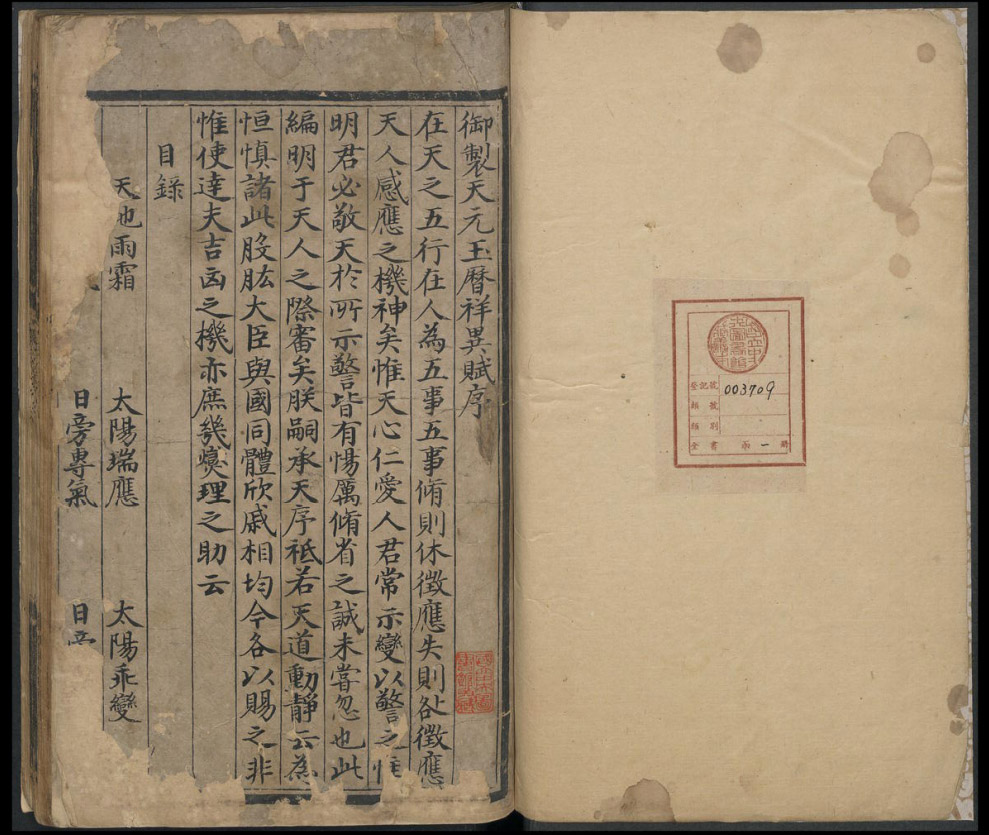 登記號 003709
類號
類別
全書 函 一 冊
御製天元玉曆祥異賦序
在天之五行在人為五事五事脩則休徵應失則咎徵應
天人感應之機神矣惟天心仁愛人君常示變以警之惟
明君必敬天於所示警皆有惕厲脩省之誠未嘗忽也此
編明于天人之際審矣朕嗣承天序祗若天道動靜云為
恒慎諸此股肱大臣與國同體欣戚相均今各以賜之非
惟使達夫吉凶之機亦庶幾燮理之助云
目錄
天地雨霜 太陽瑞應 太陽乖變
日旁專氣 日